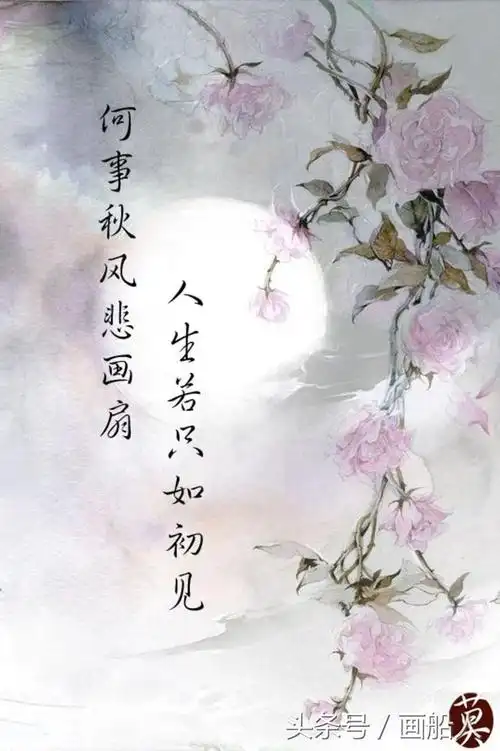 人生若只如初见
何事秋风悲画扇
头条号/画船
莫